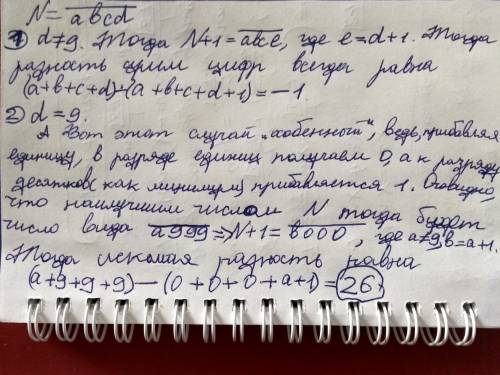 N = abcd
1) d≠9. Тогда N+1 = abce, где e=d+1. Тогда
разность сумм цифр всегда равна
(a+b+c+d)-(a+b+c+d+1)=-1.
2) d=9.
А вот этот случай „особенный", ведь, прибавляя
единицу, в разряде единиц получаем 0, а к разряду
десятков (как минимум) прибавляется 1. Очевидно,
что наилучшим числом N тогда будет
число вида a999 => N+1 = b000, где a≠9, b=a+1.
Тогда искомая разность равна
(a+9+9+9)-(0+0+0+a+1)=26.